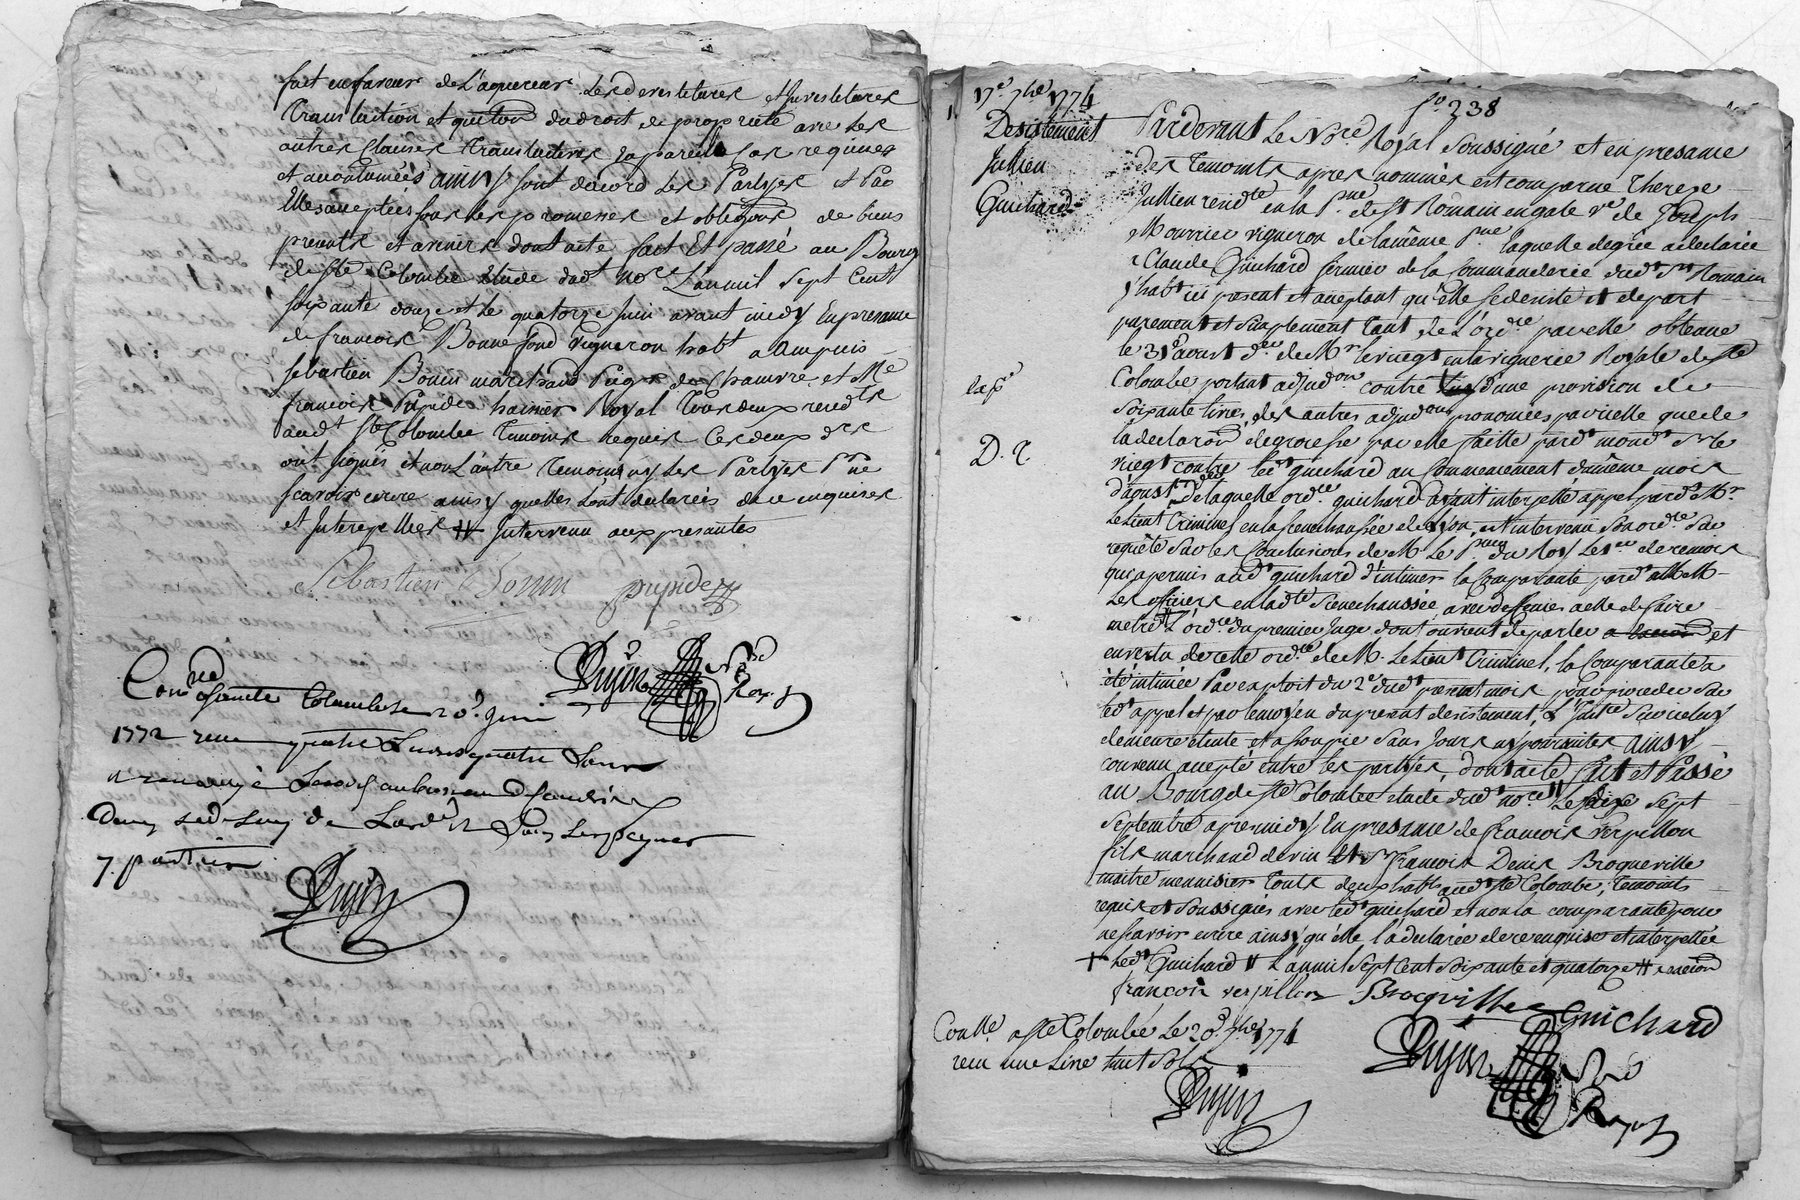 fait en faveur de L'aquereur Les devestitures et Investitures
Translation et quitton du droit de propriété avec les
autres Clauses Translatives En pareils Cas requises
et accoutumées ainsy sont daccord les Partyes et Par
Elles acceptées sous les promesses et obligaons de biens
presents et avenirs dont acte fait Et passé au Bourg
de Ste Colombe Etude dudt Nore L'an mil Sept Cent
soixante douze et le quatorze Juin avant midy En presence
de francois Bonnefond vigneron habt a Ampuis
sebastien Bonin marchand de Chanvre et Me
francois Pupide huissier Royal Tous deux residts
audt Ste Colombe Temoins requis Ces deux drs
ont signés et non L'autre Temoin ny les Partyes Pr ne
scavoir ecrire ainsy quelles L'ont declarées de ce enquises
et Interpellées # Intervenu aux presentes
Sebastien Bonin pupide
Dujon Nre
Royal
Conlle a Sainte Colombe le 20e Juin
1772 recu quatre Livres quatre Sous

7. partie
Dujon
17e 7bre 1774
fo 238
Desistement
Jullien
Guichard
Pardevant Le Nore Royal Soussigné et en presance
des Temoints apres nommés est comparue Therese
Jullien residte en la Pse de St Romain en gale ve de Joseph
Mourrier vigneron de la même Pse laquelle de grée a declaré
a Claude Guichard fermier de la Commanderie dudt St Romain
y habt ici present et acceptant qu'elle se desiste et depart
purement et simplement Tant de L'ordce par elle obtenue
le 31e aoust der de Mr le viegt en la viguerie Royale de Ste
Colombe portant adjudon contre + d'une provision de
Soixante livres, des autres adjudons prononcées par icelle que de
la declaraon de grossesse par elle faitte pardt mondt Sr le
viegt contre ledt guichard au Commencement du même mois
d'aoust der de laquelle ordce guichard ayant interjetté appel pardt Mr
le Lieut Criminel en la Senechaussée de Lyon, est intervenu son ordce Sur
requête Sur les Conclusions de M. Le Pcur du Roy Le 1er de ce mois
qui a permis audt guichard d'intimer la Comparante pardt M M
Les officiers en ladte Senechaussée avec deffenses a elle de faire
mettre L'ordce du premier Juge dont on vient de parler a execuon et
en vertu de cette ordce de M. Le Lieut Criminel, la Comparante a
été intimée Par exploit du 2e dudt present mois pour proceder Sur
ledt appel et par le moyen du present desistement, L'Instce Sur icelluy
demeure eteinte et assoupie Sans Jours ny poursuites ainsy
convenu accepté entre les partyes, dont acte fait et Passé
au Bourg de Ste Colombe etude dudt nore # Le dix Sept
Septembre apres midy En presance de francois Verpillon
fils marchand de vin et Sr francois Denis Broqueville
maitre menuisier Touts deux habts audt Ste Colombe, Temoints
requis et Soussignés avec ledt guichard et non la comparante pour
ne scavoir ecrire ainsy qu'elle l'a declarée de ce enquise et interpellée
+ Ledt Guichard # L'an mil Sept Cent Soixante et quatorze # execuon
françois verpillon Broqueville Guichard
Conlle a Ste Colombe Le 20e 7bre 1774
recu une Livre huit Sols
Dujon
Dujon Nre
Royal